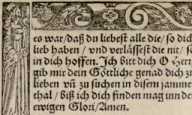 es war/daß du liebest alle die/ so dich
lieb haben/ vnd verlässest die nit/ so
in dich hoffen. Jch bitt dich O Herr
gib mir dein Göttliche genad dich zu
lieben vñ zu suchen in disem jammer
thal/ biß ich dich finden mag inn der
ewigen Glori/Amen.